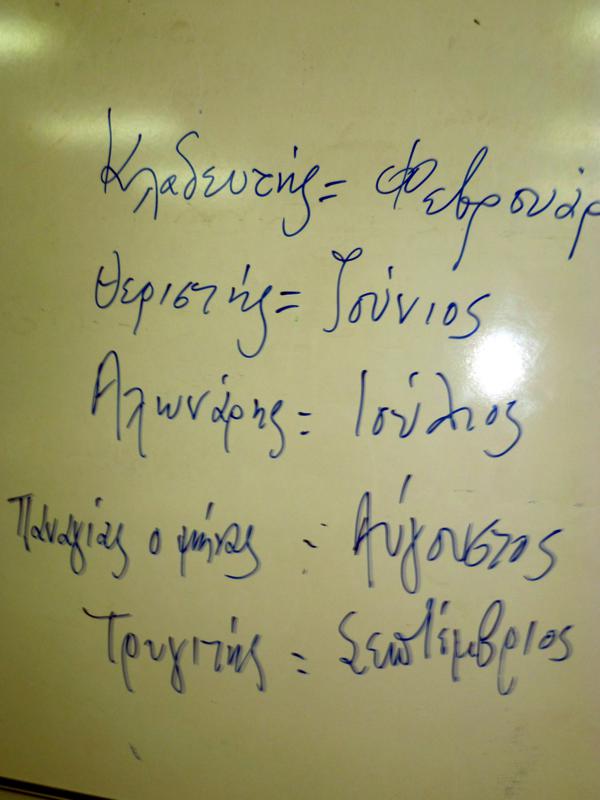 Κλαδευτής = Φεβρουάρ
Θεριστής = Ιούνιος
Αλωνάρης = Ιούλιος
Παναγιάς ο μήνας = Αύγουστος
Τρυγιτής = Σεπτέμβριος